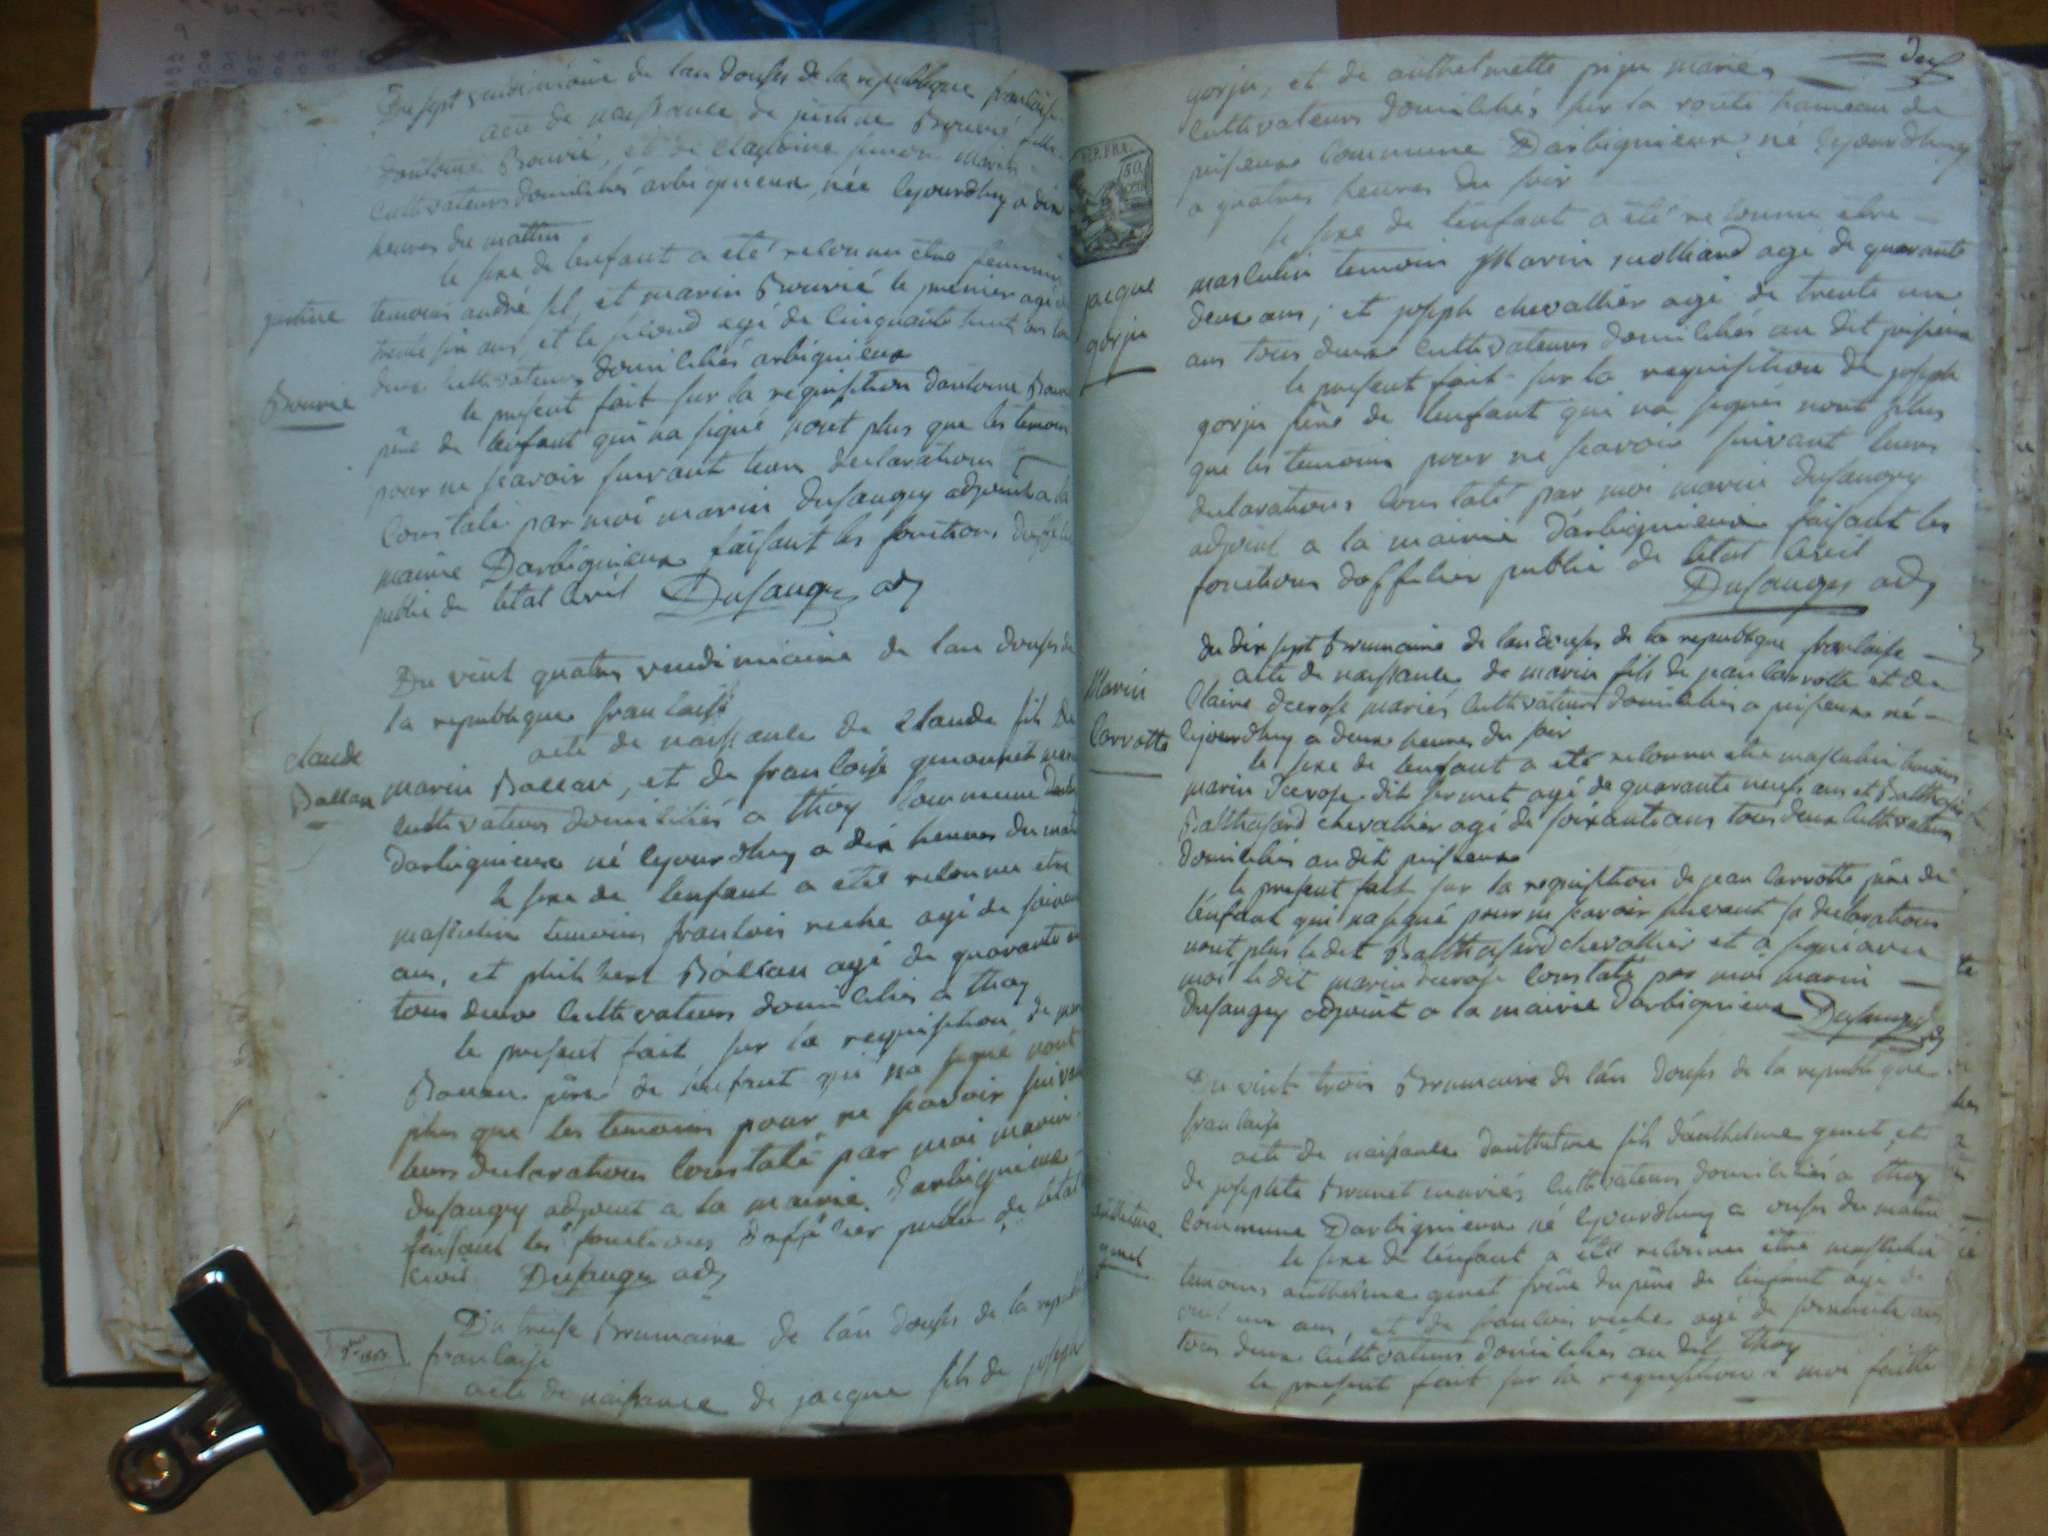 Du sept vendemiaire de lan douse de la republique francaise
acte de naissance de justine Bouvié fille
dantoine Bouvié, et de mariés
cultivateurs domiciliés arbignieux, née lejourdhuy a dix
heures du mattin
le sexe de lenfant a eté reconnu etre feminin
temoins andré et marin Bouvié le premier agé de
trente six ans, et le second agé de cinquante huit ans tous
deux cultivateurs domiciliés arbignieux
le present fait sur la requisition dantoine Bouvié
pere de lenfant qui na signé nont plus que les temoins
pour ne scavoir suivant leurs declarations
constaté par moi marin dusaugey adjoint a la
mairie Darbignieux faisant les fonctions dofficier
public de letat civil Dusaugey adj
justine
Bouvié
Du vint quatre vendemiaire de lan douse de
la republique francaise
acte de naissance de claude fils de
marin Ballan, et de francoise quonnet mariés
cultivateurs domiciliés a thoy commune
darbignieux né lejourdhuy a dix heures du matin
le sexe de lenfant a eté reconnu etre
masculin temoins francois reche agé de soixante
ans, et philibert Ballan agé de quarante
tous deux cultivateurs domiciliés a thoy
le present fait sur la requisition de marin
Ballan pere de lenfant qui na signé nont
plus que les temoins pour ne scavoir suivant
leurs declarations constaté par moi marin
dusaugey adjoint a la mairie darbignieux
faisant les fonctions dofficier public de letat
civil Dusaugey adj
claude
Ballan
Du treise Brumaire de lan douse de la republique
francaise
acte de naissance de jacque fils de joseph
gorju, et de anthelmette pigu mariés
cultivateurs domiciliés sur la route hameau de
peisieux commune Darbignieux né lejourdhuy
a quatres heures du soir
le sexe de lenfant a eté reconnu etre
masculin temoin Marin molliard agé de quarante
deux ans, et joseph chevallier agé de trente un
ans tous deux cultivateurs domiciliés au dit peisieux
le present fait sur la requisition de joseph
gorju pere de lenfant qui na signés nont plus
que les temoins pour ne scavoir suivant leurs
declarations constaté par moi marin dusaugey
adjoint a la mairie darbignieux faisant les
fonctions dofficier public de letat civil
Dusaugey adj
jacque
gorju
du dix sept Brumaire de lan douse de la republique francaise
acte de naissance de marin fils de jean carrotte et de
claire decrose mariés cultivateurs domiciliés a peisieux né
lejourdhuy a deux heures du soir
le sexe de lenfant a eté reconnu etre masculin temoins
marin decrose dit agé de quarante neufs ans et Balthasard
Balthasard chevallier agé de soixante ans tous deux cultivateurs
domiciliés au dit peisieux
le present fait sur la requisition de jean carrotte pere de
lenfant qui na signé pour ne scavoir suivant sa declaration
nont plus le dit Balthasard chevallier et a signé avec
moi le dit marin decrose constaté par moi marin
dusaugey adjoint a la mairie darbignieux Dusaugey adj
Marin
Carrotte
Du vint trois Brumaire de lan douse de la republique
francaise
acte de naissance danthelme fils danthelme genet et
de josephte Brunet mariés cultivateurs domiciliés a thoy
commune Darbignieux né lejourdhuy a onse du matin
le sexe de lenfant a eté reconnu etre masculin
temoins anthelme genet frere du pere de lenfant agé de
vint un ans, et de francois reche agé de soixante ans
tous deux cultivateurs domiciliés au dit thoy
le present fait sur la requisition a moi faitte
anthelme
genet